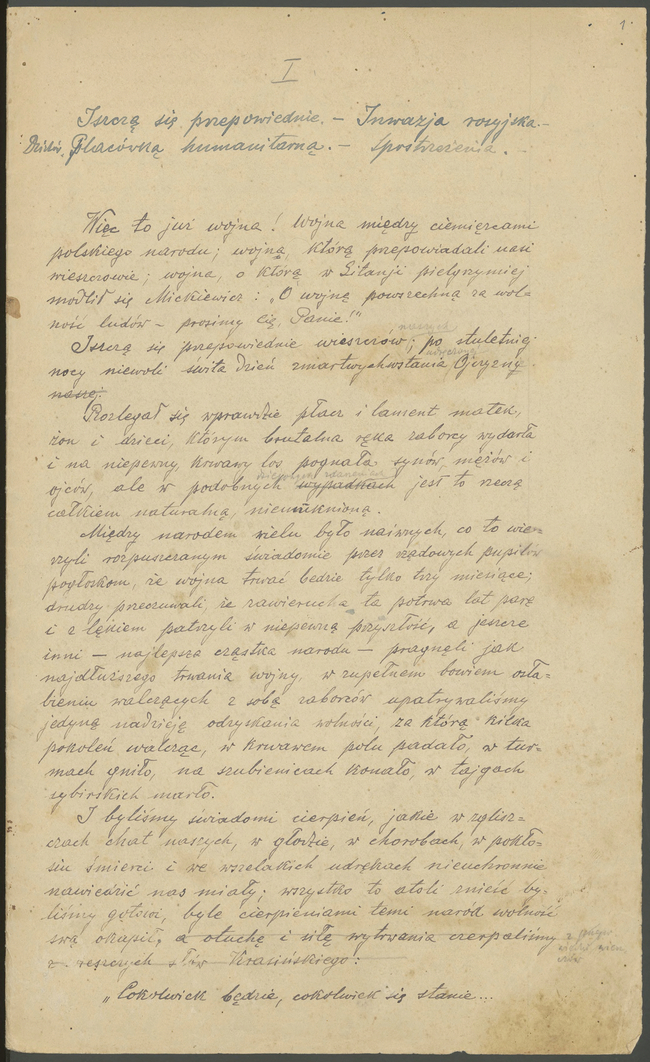 1
I
Iszczą się przepowiednie. — Inwazja rosyjska. —
Placówką humanitarną. — Spostrzeżenia. —
Więc to już wojna! Wojna między ciemięzcami
polskiego narodu; wojna, którą przepowiadali nasi
wieszczowie; wojna, o którą w Litanji pielgrzymiej
modlił się Mickiewicz: „O wojnę powszechną za wol-
ność ludów — prosimy Cię, Panie!"
naszych
Iszczą się przepowiednie wieszczów; po stuletniej
nocy niewoli świta dzień zmartwychwstania Ojczyzny
naszej.
Rozlegał się wprawdzie płacz i lament matek,
żon i dzieci, którym brutalna ręka zaborcy wydarła
i na niepewny, krwawy los pognała synów, mężów i
ojców, ale w podobnych wypadkach jest to rzeczą
całkiem naturalną, nieuniknioną.
Między narodem wielu było naiwnych, co to wie-
rzyli rozpuszczanym świadomie przez rządowych pupilów
pogłoskom, że wojna trwać będzie tylko trzy miesiące;
drudzy przeczuwali, że zawierucha ta potrwa lat parę
i z lękiem patrzyli w niepewną przyszłość, a jeszcze
inni — najlepsza cząstka narodu — pragnęli jak
najdłuższego trwania wojny, w zupełnem bowiem osła-
bieniu walczących z sobą zaborców upatrywaliśmy
jedyną nadzieję odzyskania wolności, za którą kilka
pokoleń walcząc, w krwawem polu padało, w tur-
mach gniło, na szubienicach konało, w tajgach
sybirskich marło.
I byliśmy świadomi cierpień, jakie w zglisz-
czach chat naszych, w głodzie, w chorobach, w pokło-
siu śmierci i we wszelakich udrękach nieuchronnie
nawiedzić nas miały; wszystko to atoli znieść by-
liśmy gotowi, byle cierpieniami temi naród wolność
swą okupił, a otuchę i siłę wytrwania czerpaliśmy
z wieszczych słów Krasińskiego:
„Cokolwiek będzie, cokolwiek się stanie...